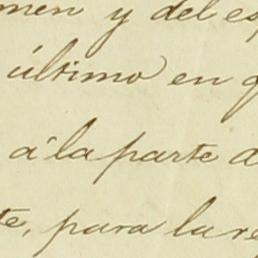 men y del es
último en q
á la parte d
te, para la re